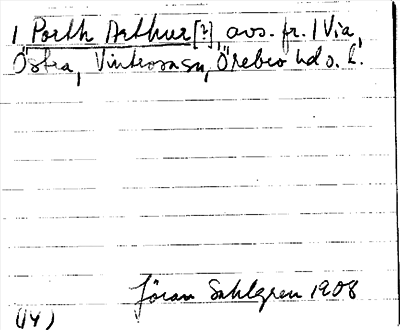 1 Porth Arthur [?], avs. fr. 1 Via,
Östra, Vintrosa sn, Örebro hd o. l.
Jöran Sahlgren 1908
(14)